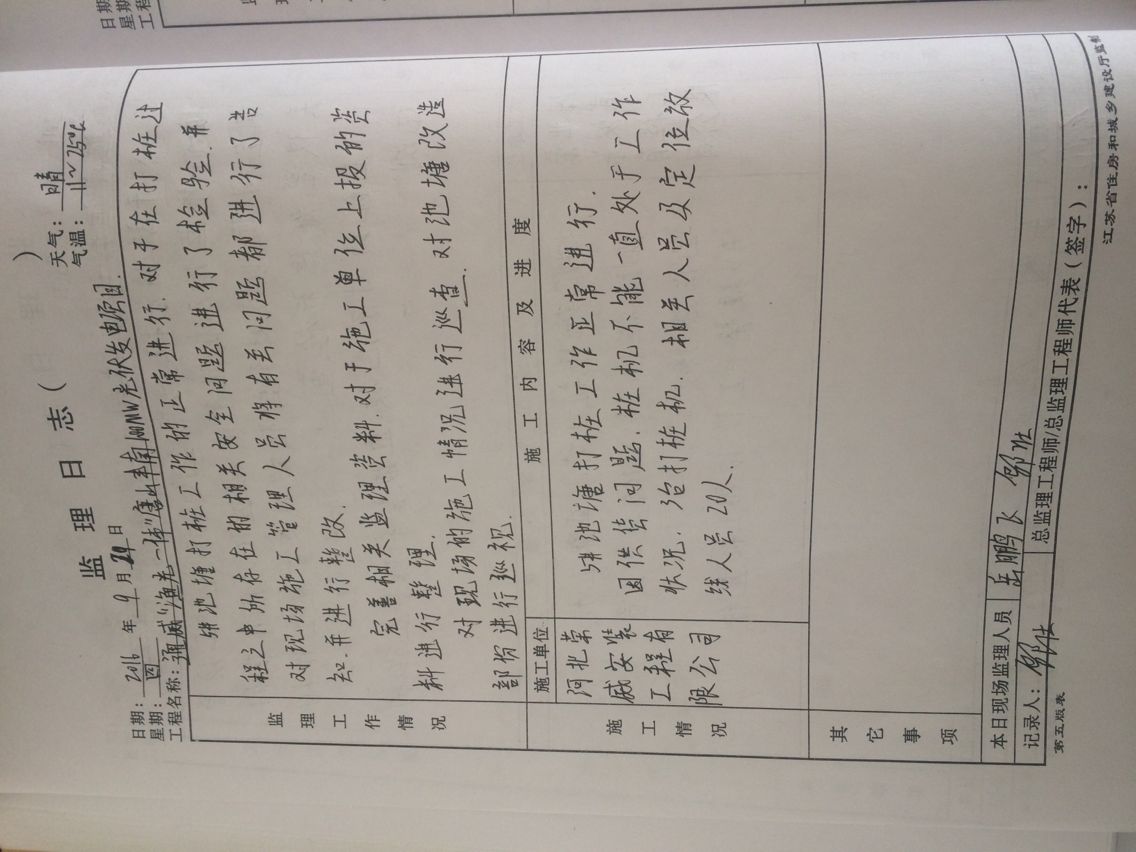 监 理 日 志 （ ）
日期： 2016 年 9 月 日 天气： 晴
星期： 四 气温： 11~25℃
工程名称：通威"渔光一体"唐山丰南 MW光伏发电项目.
监理工作情况
5#池塘打桩工作的正常进行. 对于在打桩过
程之中所存在的相关安全问题进行了检验. 并
对现场施工管理人员将有关问题都进行了告
知. 并进行整改.
完善相关监理资料. 对于施工单位上报的资
料进行整理.
对现场的施工情况进行巡查. 对池塘改造
部份进行巡视.
施工情况
施工单位 施 工 内 容 及 进 度
河北荣
威安装
工程有
限公司
5#池塘打桩工作正常进行.
因供货问题. 桩机不能一直处于工作
状况. 打桩机. 相关人员及定位放
线人员20人.
其它事项
本日现场监理人员 岳鹏飞 郭壮
记录人： 郭壮 总监理工程师/总监理工程师代表（签字）：
第五版表 江苏省住房和城乡建设厅监制
日期
星期
工程